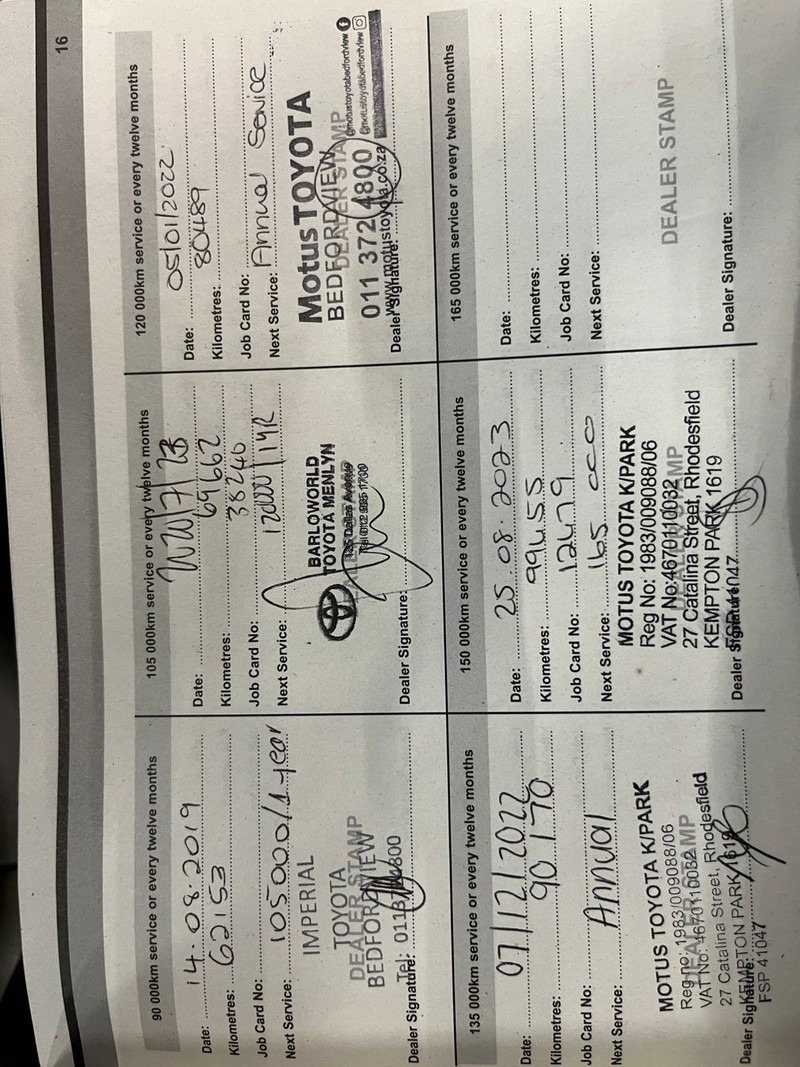 16
90 000km service or every twelve months
Date: 14.08.2019
Kilometres: 62153
Job Card No:
Next Service: 105000/1 year
IMPERIAL
TOYOTA
DEALER STAMP
BEDFORDVIEW
Dealer Signature:
105 000km service or every twelve months
Date:
Kilometres: 69662
Job Card No: 38240
Next Service:
BARLOWORLD
TOYOTA MENLYN
Dealer Signature:
120 000km service or every twelve months
Date: 05/01/2022
Kilometres: 80489
Job Card No:
Next Service: Annual Service
Motus TOYOTA
BEDFORDVIEW
DEALER STAMP
011 372 4800
www.motustoyota.co.za
@motustoyotabedfordview
@motustoyotabedfordview
Dealer Signature:
135 000km service or every twelve months
Date: 07/12/2022
Kilometres: 90170
Job Card No:
Next Service: Annual
MOTUS TOYOTA K/PARK
Reg no: 1983/009088/06
DEALER STAMP
VAT No: 4670110032
27 Catalina Street, Rhodesfield
KEMPTON PARK 1619
Dealer Signature:
FSP 41047
150 000km service or every twelve months
Date: 25.08.2023
Kilometres: 99455
Job Card No: 12479
Next Service: 165 000
MOTUS TOYOTA K/PARK
Reg No: 1983/009088/06
VAT No:4670110032
DEALER STAMP
27 Catalina Street, Rhodesfield
KEMPTON PARK 1619
FSP 41047
Dealer Signature:
165 000km service or every twelve months
Date:
Kilometres:
Job Card No:
Next Service:
DEALER STAMP
Dealer Signature: